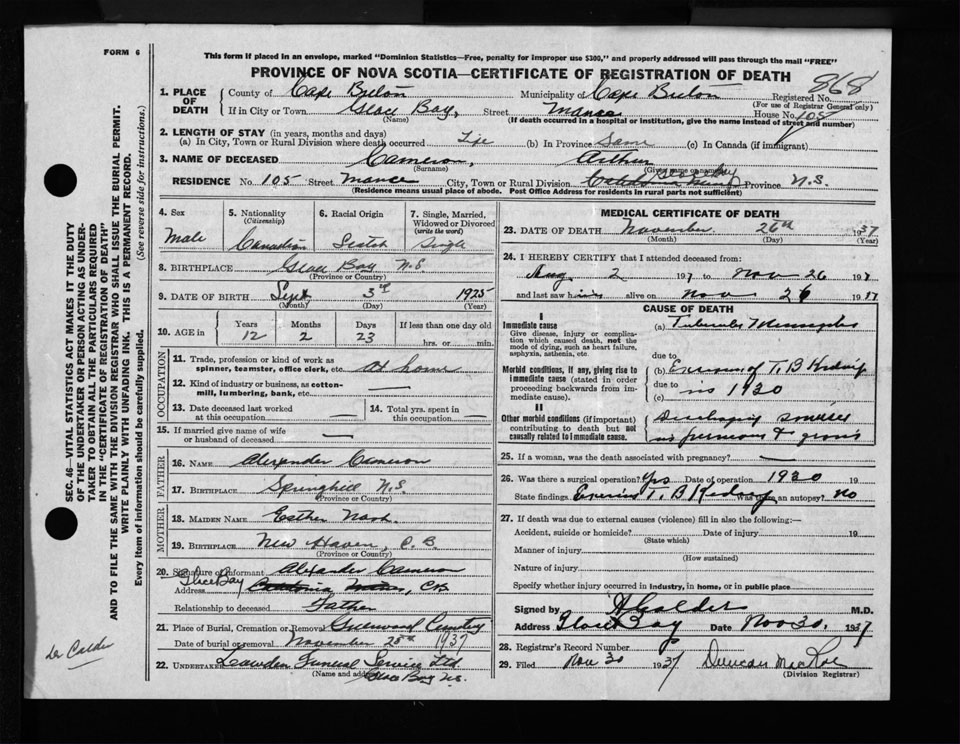 FORM 6
This form if placed in an envelope, marked "Dominion Statistics—Free, penalty for improper use $300," and properly addressed will pass through the mail "FREE"
PROVINCE OF NOVA SCOTIA—CERTIFICATE OF REGISTRATION OF DEATH
868
1. PLACE OF DEATH County of Cape Breton Municipality of Cape Breton Registered No.
(For use of Registrar General only)
If in City or Town Glace Bay, Street House No. 105
(Name) (If death occurred in a hospital or institution, give the name instead of street and number)
2. LENGTH OF STAY (in years, months and days)
(a) In City, Town or Rural Division where death occurred Life (b) In Province Same (c) In Canada (if immigrant)
3. NAME OF DECEASED Cameron, Arthur
(Surname) (Given name or names)
RESIDENCE No. 105 Street City, Town or Rural Division Province N.S.
(Residence means usual place of abode. Post Office Address for residents in rural parts not sufficient)
4. Sex Male
5. Nationality (Citizenship) Canadian
6. Racial Origin Scotch
7. Single, Married, Widowed or Divorced (write the word) Single
8. BIRTHPLACE Glace Bay N.S.
(Province or Country)
9. DATE OF BIRTH Sept 3rd 1925
(Month) (Day) (Year)
10. AGE in Years 12 Months 2 Days 23 If less than one day old hrs. or min.
OCCUPATION
11. Trade, profession or kind of work as spinner, teamster, office clerk, etc. At home
12. Kind of industry or business, as cotton-mill, lumbering, bank, etc. —
13. Date deceased last worked at this occupation —
14. Total yrs. spent in this occupation —
15. If married give name of wife or husband of deceased —
FATHER
16. NAME Alexander Cameron
17. BIRTHPLACE Springhill N.S.
(Province or Country)
MOTHER
18. MAIDEN NAME Esther Nash.
19. BIRTHPLACE New Haven, C.B.
(Province or Country)
20. Signature of informant Alexander Cameron
Address Glace Bay
Relationship to deceased Father
21. Place of Burial, Cremation or Removal Greenwood Cemetery
Date of burial or removal November 1937
22. UNDERTAKER Funeral Service Ltd
(Name and address) Glace Bay N.S.
MEDICAL CERTIFICATE OF DEATH
23. DATE OF DEATH November 26th 1937
(Month) (Day) (Year)
24. I HEREBY CERTIFY that I attended deceased from:
Aug 2 1937 to Nov 26 1937
and last saw h alive on Nov 26 1937
CAUSE OF DEATH
I
Immediate cause
Give disease, injury or complication which caused death, not the mode of dying, such as heart failure, asphyxia, asthenia, etc.
(a) Tubercular Meningitis
due to
Morbid conditions, if any, giving rise to immediate cause (stated in order proceeding backwards from immediate cause).
(b) Excision of T.B Kidney
due to
(c) in 1930
II
Other morbid conditions (if important) contributing to death but not causally related to immediate cause.
Discharging sinuses
25. If a woman, was the death associated with pregnancy? —
26. Was there a surgical operation? Yes Date of operation 1930 19
State findings T.B Kidney Was there an autopsy? No
27. If death was due to external causes (violence) fill in also the following:—
Accident, suicide or homicide? Date of injury 19
(State which)
Manner of injury
(How sustained)
Nature of injury
Specify whether injury occurred in industry, in home, or in public place
Signed by A Calder M.D.
Address Glace Bay Date Nov 30, 1937
28. Registrar's Record Number
29. Filed Nov 30 1937 Duncan MacRae
(Division Registrar)
SEC. 46—VITAL STATISTICS ACT MAKES IT THE DUTY OF THE UNDERTAKER OR PERSON ACTING AS UNDERTAKER TO OBTAIN ALL THE PARTICULARS REQUIRED IN THE "CERTIFICATE OF REGISTRATION OF DEATH" AND TO FILE THE SAME WITH THE DIVISION REGISTRAR WHO SHALL ISSUE THE BURIAL PERMIT.
WRITE PLAINLY WITH UNFADING INK. THIS IS A PERMANENT RECORD.
Every item of information should be carefully supplied. (See reverse side for instructions.)
Dr Calder